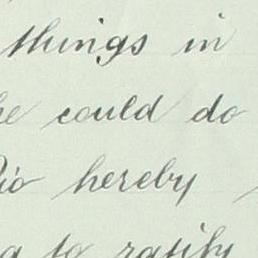 things in
he could do
hereby
to ratify